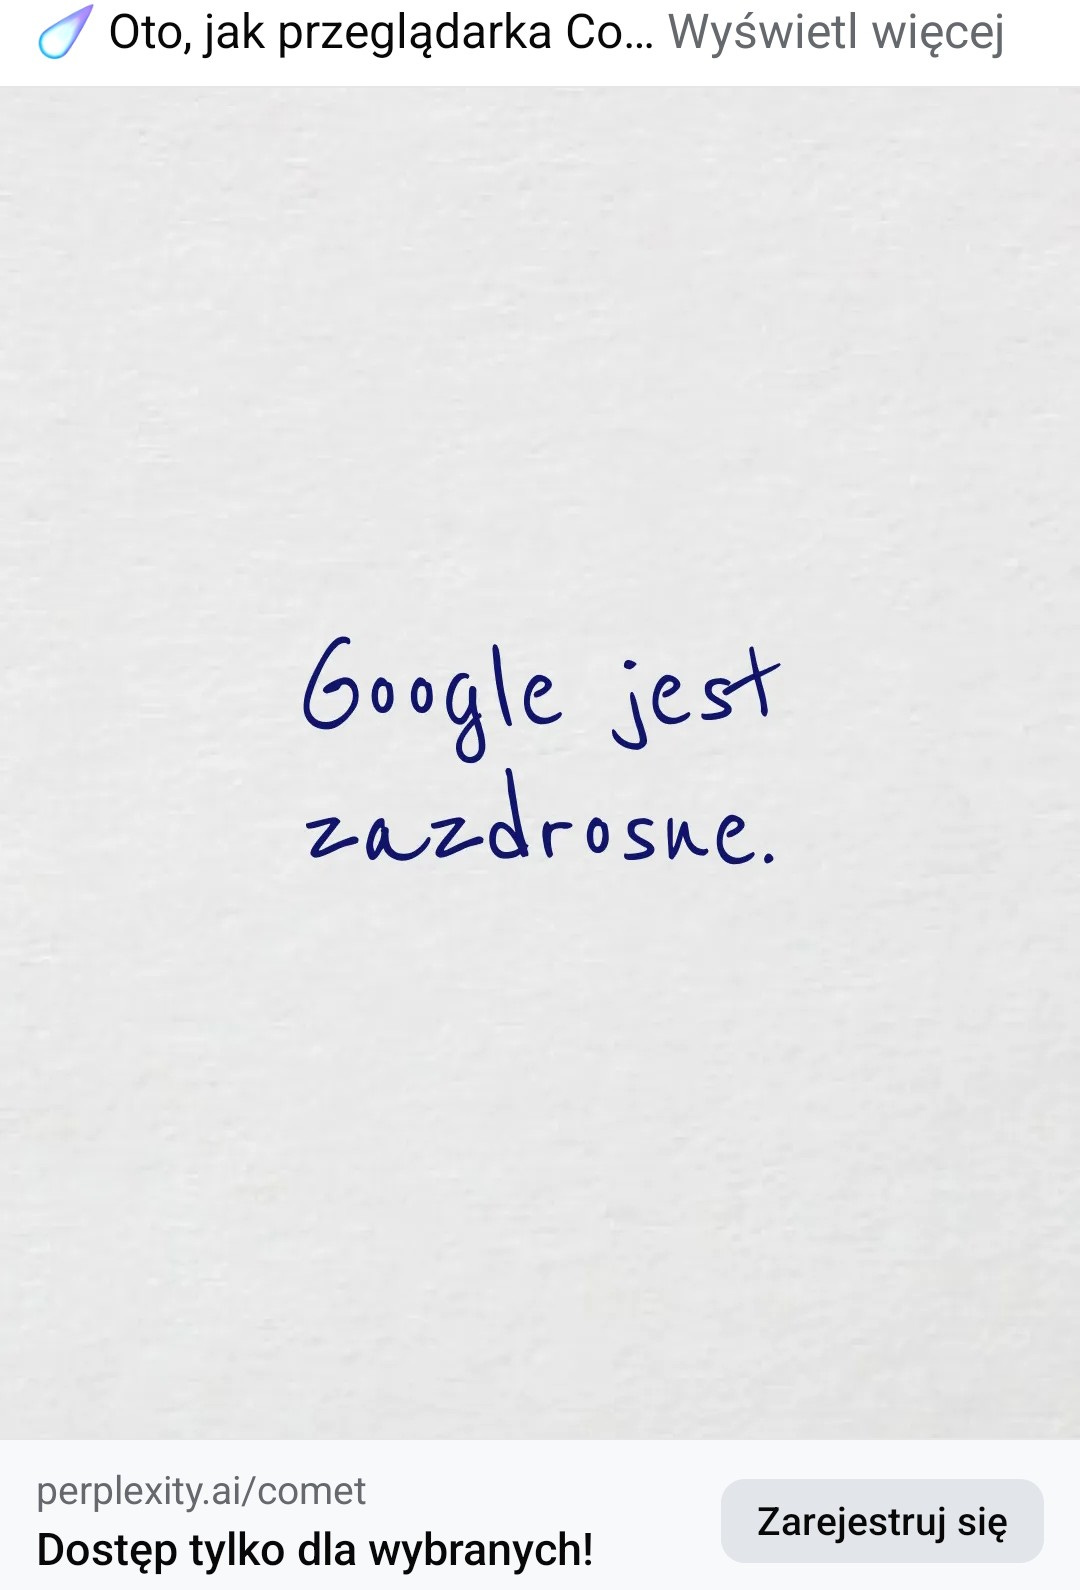 Oto, jak przeglądarka Co... Wyświetl więcej
Google jest
zazdrosne.
perplexity.ai/comet
Dostęp tylko dla wybranych!
Zarejestruj się